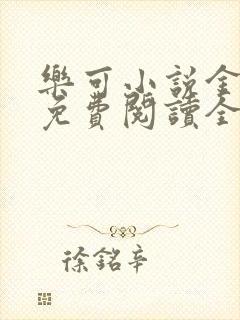 樂可小說全
免費閱讀全
徐銘辛